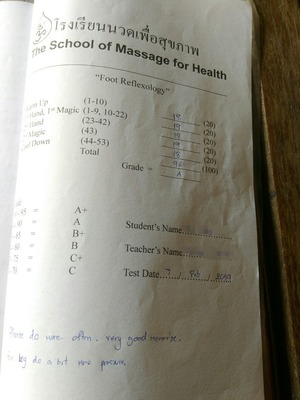 โรงเรียนนวดเพื่อสุขภาพ
The School of Massage for Health
"Foot Reflexology"
Up (1-10) 19 (20)
Hand, 1st Magic (1-9, 10-22) 19 (20)
Hand (23-42) 19 (20)
Magic (43) (20)
Down (44-53) 18 (20)
Total (100)
Grade = A
= A+
= A
= B+
= B
= C+
= C
Student's Name
Teacher's Name
Test Date 7 / Feb /
do more often. very good memorize.
leg do a bit more pressure.